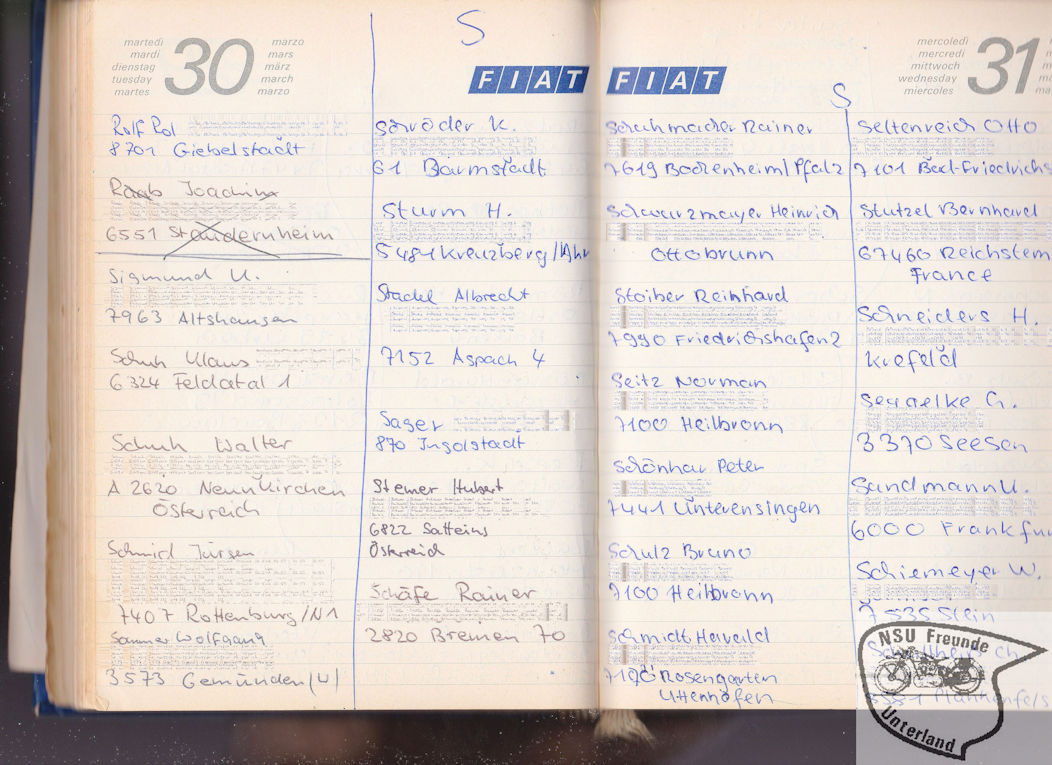 martedì
mardi
dienstag
tuesday
martes
30
marzo
mars
märz
march
marzo
Rolf Rol
8701 Giebelstadt
Raab Joachim
6551 Staudernheim
Sigmund U.
7963 Altshausen
Schuh Klaus
6324 Feldatal 1
Schuh Walter
A 2620 Neunkirchen
Österreich
Schmid Jürgen
7407 Rottenburg/N1
Sommer Wolfgang
3573 Gemünden (W)
S
FIAT
Schröder K.
61 Darmstadt
Sturm H.
5481 Kreuzberg/Ahr
Stadel Albrecht
7152 Aspach 4
Sager
870 Ingolstadt
Steiner Hubert
6822 Satteins
Österreich
Schäfe Rainer
2820 Bremen 70
FIAT
Schuhmacher Rainer
7619 Bockenheim/Pfalz
Schwarzmayer Heinrich
Ottobrunn
Stoiber Reinhard
7990 Friedrichshafen 2
Seitz Norman
7100 Heilbronn
Schönhar Peter
7441 Unterensingen
Schulz Bruno
7100 Heilbronn
Schmidt Harald
Rosengarten
Uttenhofen
mercoledì
mercredi
mittwoch
wednesday
miercoles
31
S
Seltenreich Otto
7101 Bad-Friedrichs
Stutzel Bernhard
67460 Reichstem
France
Schneiders H.
Krefeld
Seggelke G.
3370 Seesen
Sandmann U.
6000 Frankfur
Schiemeyer W.
7535 Stein
NSU Freunde
Unterland